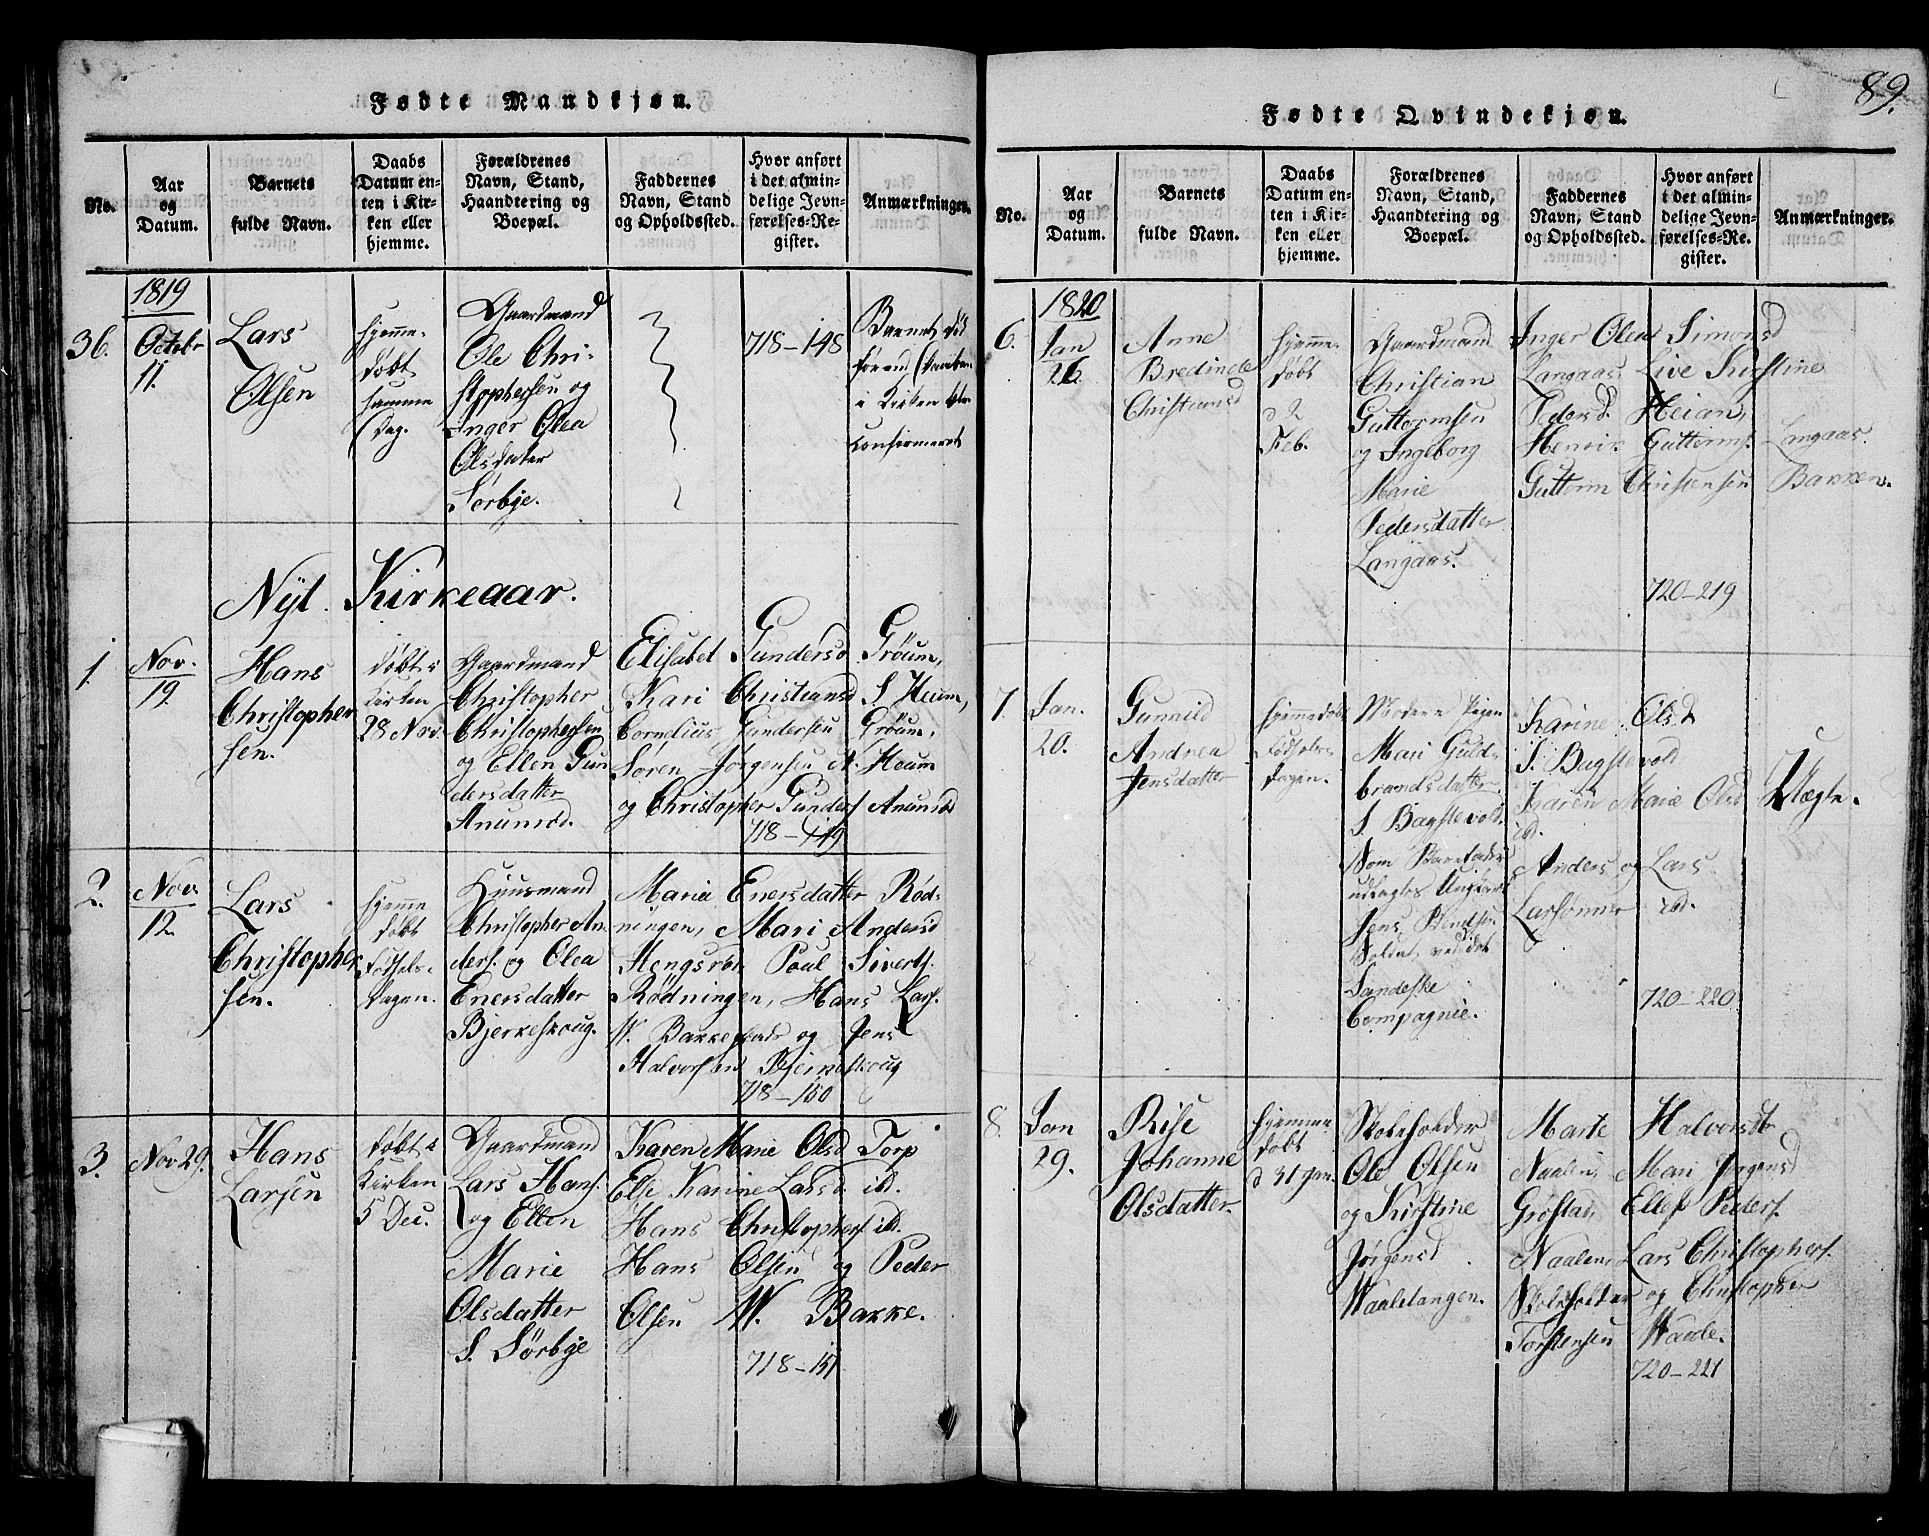 Fødte Mandkjøn.
No.
Aar
og
Datum.
Barnets
fulde Navn.
Daabs
Datum en-
ten i Kir-
ken eller
hjemme.
Forældrenes
Navn, Stand,
Haandtering og
Boepæl.
Faddernes
Navn, Stand
og Opholdssted.
Hvor anført
i det almin-
delige Jevn-
førelses-Re-
gister.
Anmærkninger.
36.
1819
Octobr
11.
Lars
Olsen
hjemme-
døbt
samme
Dag.
Gaardmand
Ole Chri-
stophersen og
Inger Olea
Olsdater
Sørbye.
718-148
Barnet død
førend
i Kirken
confirmeret
Nyt Kirkeaar.
1.
Nov.
19.
Hans
Christopher
sen.
døbt i
Kirken
28 Nov.
Gaardmand
Christopher
Christophersen
og Ellen Gun
dersdatter
Anumrød.
Elisabet Gundersd. Grøum,
Kari Christiansd S. Heum,
Cornelius Gundersen Grøum,
Søren Jørgensen N. Heum
og Christopher Gunders. Anumrød
718-149
2.
Nov.
12.
Lars
Christopher
sen.
hjemme
døbt
Fødsels-
dagen.
Huusmand
Christopher An
ders. og Olea
Enersdatter
Bjerkeskoug.
Maria Enersdatter Rød-
ningen, Mari Andersd
Hengsrød Poul Siverts.
Rødningen, Hans Lars.
W. Bakkestad og Jens
Halvorsen Bjerkeskoug
718-150
3.
Nov 29.
Hans
Larsen
døbt i
Kirken
5 Dec.
Gaardmand
Lars Hans.
og Ellen
Marie
Olsdatter
S. Sørbye
Karen Marie Olsd Torp
Else Karine Larsd. ibd.
Hans Christophers. ibd.
Hans Olsen og Peder
Olsen W. Bakke.
718-151
89.
Fødte Qvindekjøn.
No.
Aar
og
Datum.
Barnets
fulde Navn.
Daabs
Datum en-
ten i Kir-
ken eller
hjemme.
Forældrenes
Navn, Stand,
Haandtering og
Boepæl.
Faddernes
Navn, Stand
og Opholdssted.
Hvor anført
i det almin-
delige Jevn-
førelses-Re-
gister.
Anmærkninger.
6.
1820
Jan
26.
Anne
Bredinete
Christiansd
hjemme-
døbt
d 2
Feb.
Gaardmand
Christian
Guttormsen
og Ingeborg
Marie
Pedersdatter
Langaas.
Inger Olea Simonsd
Langaas, Live Kirstine
Pedersd. Heian,
Henrik Guttorms. Langaas.
Guttorm Christensen Bakken.
720-219
7.
Jan.
20.
Gunnild
Andrea
Jensdatter
hjemmedøbt
Fødsels-
dagen.
Moderen Pigen
Mari Guld-
brandsdatter
S. Bagstevold.
Som Barnefader
udlagdes Ungkarl
Jens
ved det
Sandeske
Compagnie.
Karine Olsd
S. Bagstevold
Karen Marie Olsd
ibd.
Anders og Lars
Larsønner ibd.
Uægte.
720-220
8.
Jan
29.
Rise
Johanne
Olsdatter
hjemme
døbt
d 31 Jan.
Skoleholder
Ole Olsen
og Kirstine
Jørgensd
Waaletangen.
Marte Halversdtr
Naalen, Mari Jørgensd
Grøstad, Ellef Peders.
Naalen, Lars Christophers.
Skoleholder og Christopher
Torstensen Waale.
720-221